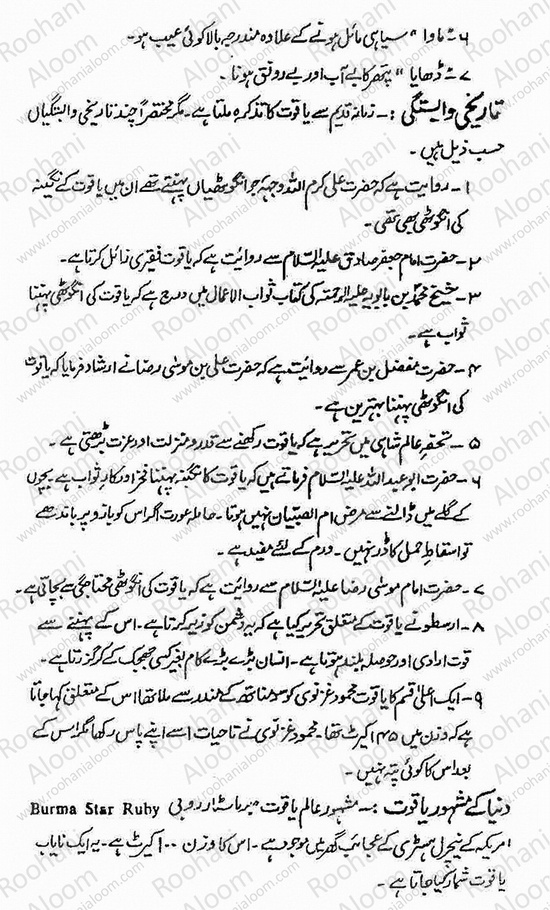 ۶ - "ماوا" سیاہی مائل ہونے کے علاوہ مندرجہ بالا کوئی عیب ہو۔
۷ - "ڈھایا" پتھر کا بے آب اور بے رونق ہونا۔
تاریخی وابستگی :- زمانہ قدیم سے یاقوت کا تذکرہ ملتا ہے۔ مگر مختصراً چند تاریخی وابستگیاں
حسب ذیل ہیں۔
۱ - روایت ہے کہ حضرت علی کرم اللہ وجہہ جو انگوٹھیاں پہنتے تھے ان میں یاقوت کے نگینہ
کی انگوٹھی بھی تھی۔
۲ - حضرت امام جعفر صادق علیہ السلام سے روایت ہے کہ یاقوت فقیری زائل کرتا ہے۔
۳ - شیخ محمد بن بابویہ علیہ الرحمتہ کی کتاب ثواب الاعمال میں درج ہے کہ یاقوت کی انگوٹھی پہننا
ثواب ہے۔
۴ - حضرت مفضل بن عمر سے روایت ہے کہ حضرت علی بن موسٰی رضا نے ارشاد فرمایا کہ یاقوت
کی انگوٹھی پہننا بہترین ہے۔
۵ - تحفہ عالم شاہی میں تحریر ہے کہ یاقوت رکھنے سے قدر و منزلت اور عزت بڑھتی ہے۔
۶ - حضرت ابو عبد اللہ علیہ السلام فرماتے ہیں کہ یاقوت کا نگینہ پہننا فخر اور کار ثواب ہے۔ بچوں
کے گلے میں ڈالنے سے مرض ام الصبیان نہیں ہوتا۔ حاملہ عورت اگر اس کو بازو پر باندھے
تو اسقاط حمل کا ڈر نہیں۔ ورم کے لئے مفید ہے۔
۷ - حضرت امام موسٰی رضا علیہ السلام سے روایت ہے کہ یاقوت کی انگوٹھی محتاجگی سے بچاتی ہے۔
۸ - ارسطو نے یاقوت کے متعلق تحریر کیا ہے کہ یہ دشمن کو زیر کرتا ہے۔ اس کے پہننے سے
قوت ارادی اور حوصلہ بلند ہوتا ہے۔ انسان بڑے بڑے کام بغیر کسی جھجک کے کر گزرتا ہے۔
۹ - ایک اعلیٰ قسم کا یاقوت محمود غزنوی کو سومناتھ کے مندر سے ملا تھا اس کے متعلق کہا جاتا
ہے کہ وزن میں ۱۴۵ کیرٹ تھا۔ محمود غزنوی نے تاحیات اسے اپنے پاس رکھا مگر اس کے
بعد اس کا کوئی پتہ نہیں۔
دنیا کے مشہور یاقوت :- مشہور عالم یاقوت برما سٹار روبی Burma Star Ruby
امریکہ کے نیچرل ہسٹری کے عجائب گھر میں موجود ہے۔ اس کا وزن ۱۰۰ کیرٹ ہے۔ یہ ایک نایاب
یاقوت شمار کیا جاتا ہے۔
Roohani Aloom
www.roohanialoom.com